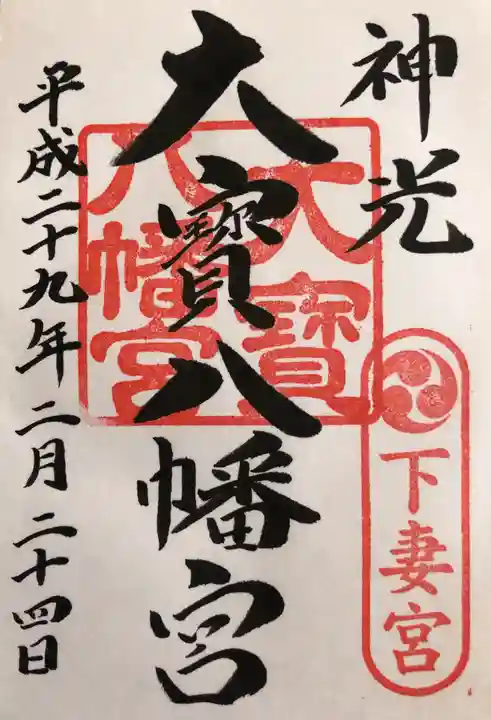 神光
下妻宮
大寶八幡宮
大寶
八幡宮
平成二十九年二月二十四日